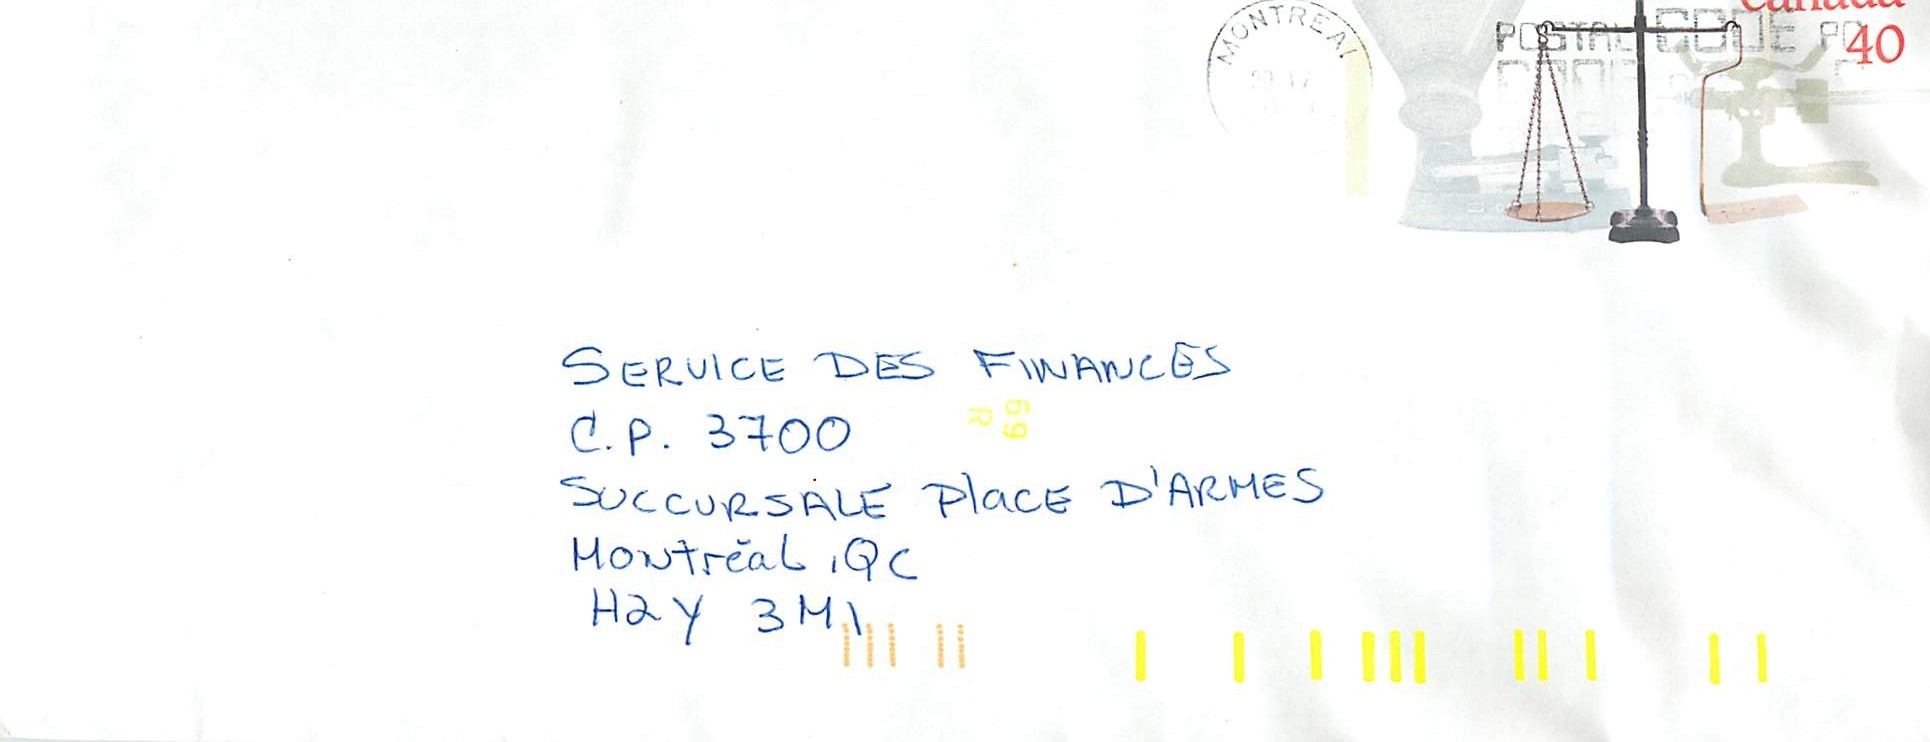 Canada
40
MONTREAL
POSTAL CODE
SERVICE DES FINANCES
C.P. 3700
69
R
SUCCURSALE Place D'ARMES
Montréal, QC
H2Y 3M1